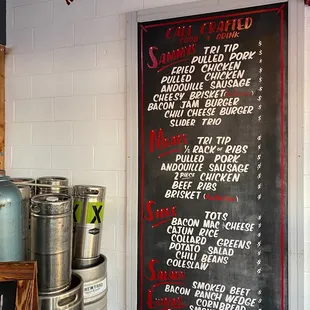 CALI CRAFTED
FOOD & DRINK
SAMMIES TRI TIP
PULLED PORK
FRIED CHICKEN
PULLED CHICKEN
ANDOUILLE SAUSAGE
CHEESY BRISKET
BACON JAM BURGER
CHILI CHEESE BURGER
SLIDER TRIO
MEATS TRI TIP
½ RACK OF RIBS
PULLED PORK
ANDOUILLE SAUSAGE
2 PIECE CHICKEN
BEEF RIBS
BRISKET
SIDES TOTS
BACON MAC & CHEESE
CAJUN RICE
COLLARD GREENS
POTATO SALAD
CHILI BEANS
COLESLAW
SMOKED BEET
BACON RANCH WEDGE
CORNBREAD